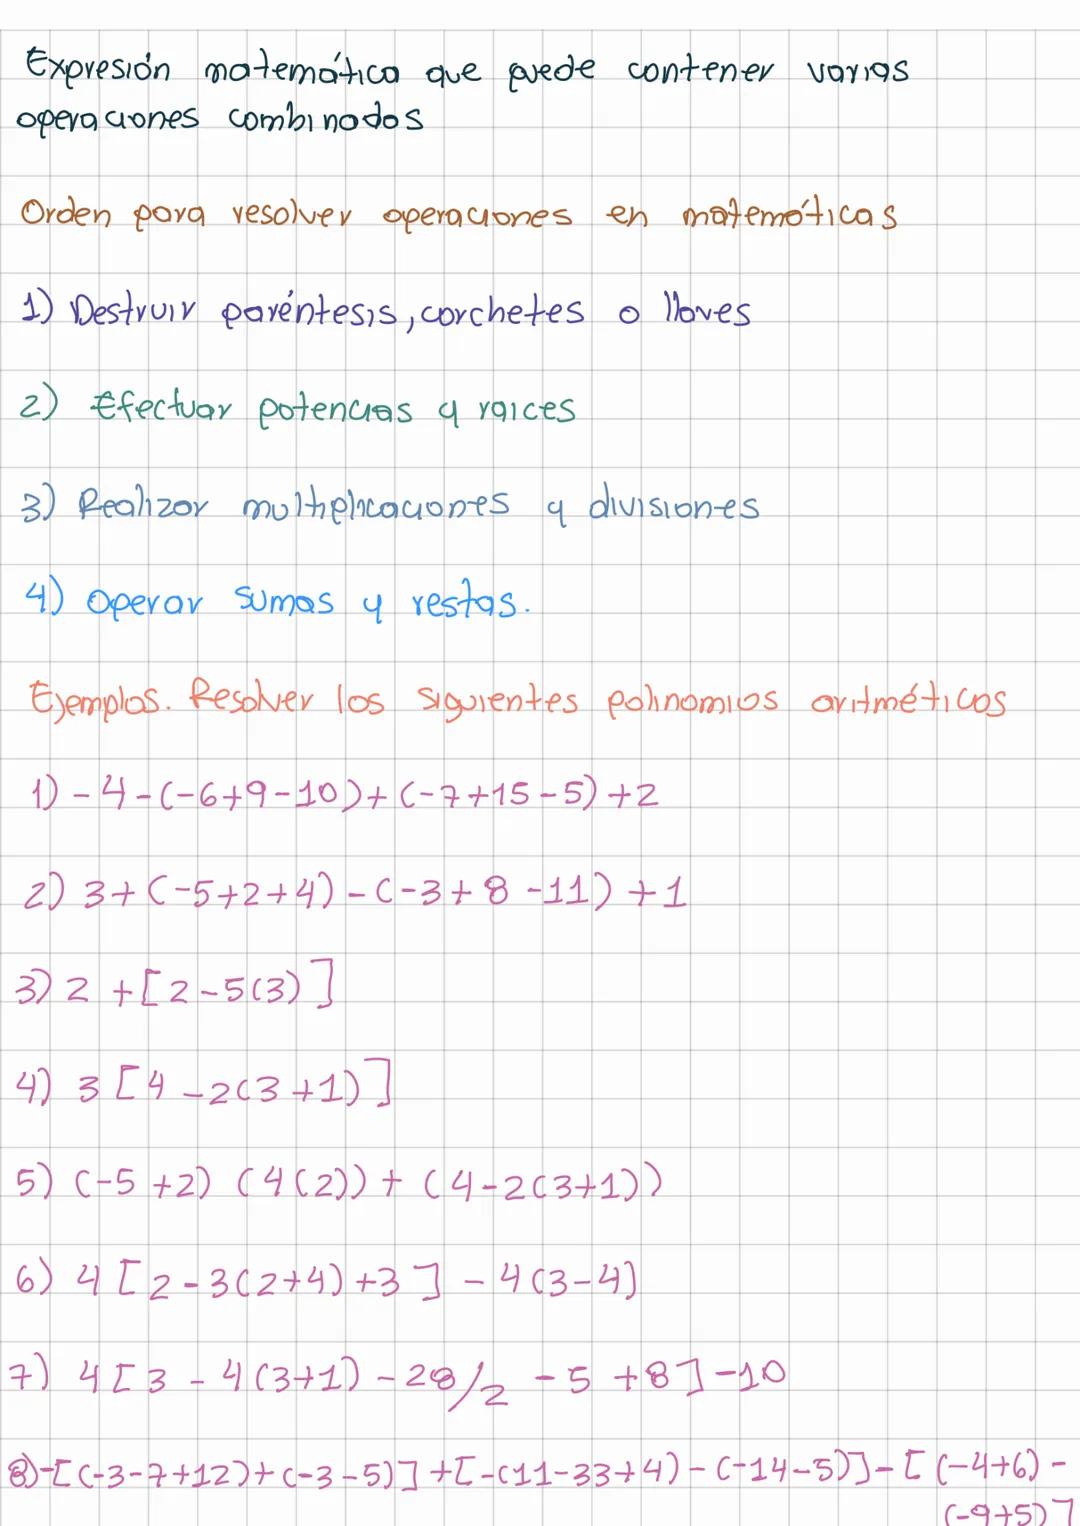 Expresión matemática que puede contener varias
operaciones combinadas
Orden para resolver operaciones en matemáticas
1) Destruir paréntesis, corchetes o llaves
2) Efectuar potencias y raices
3) Realizar multiplicaciones y divisiones
4) Operar sumas y restas.
Ejemplos. Resolver los siguientes polinomios aritméticos
1) -4-(-6+9-10)+(-7+15-5)+2
2) 3+(-5+2+4)-(-3+8-11)+1
3) 2+[2-5(3)]
4) 3[4-2(3+1)]
5) (-5+2)(4(2))+(4-2(3+1))
6) 4[2-3(2+4)+3]-4(3-4)
7) 4[3-4(3+1)-28/2-5+8]-10
8) -[(-3-7+12)+(-3-5)]+[-(11-33+4)-(-14-5)]-[(-4+6)-
(-9+5)]